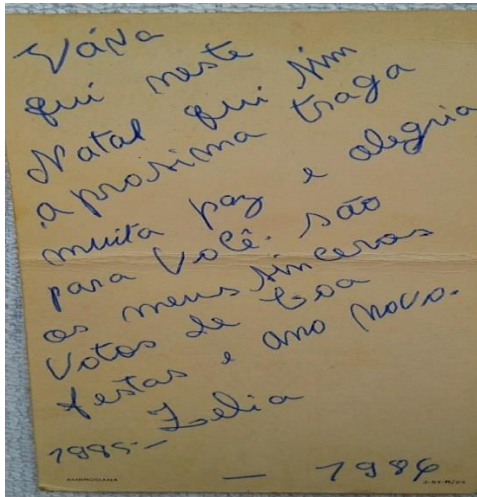 Vána
qui neste
Natal qui sim
aprosima traga
muita paz e alegria
para você. são
os meus sinceros
votos de boa
festas e ano novo.
Zelia
1985-
— 1986
AMBROSIANA